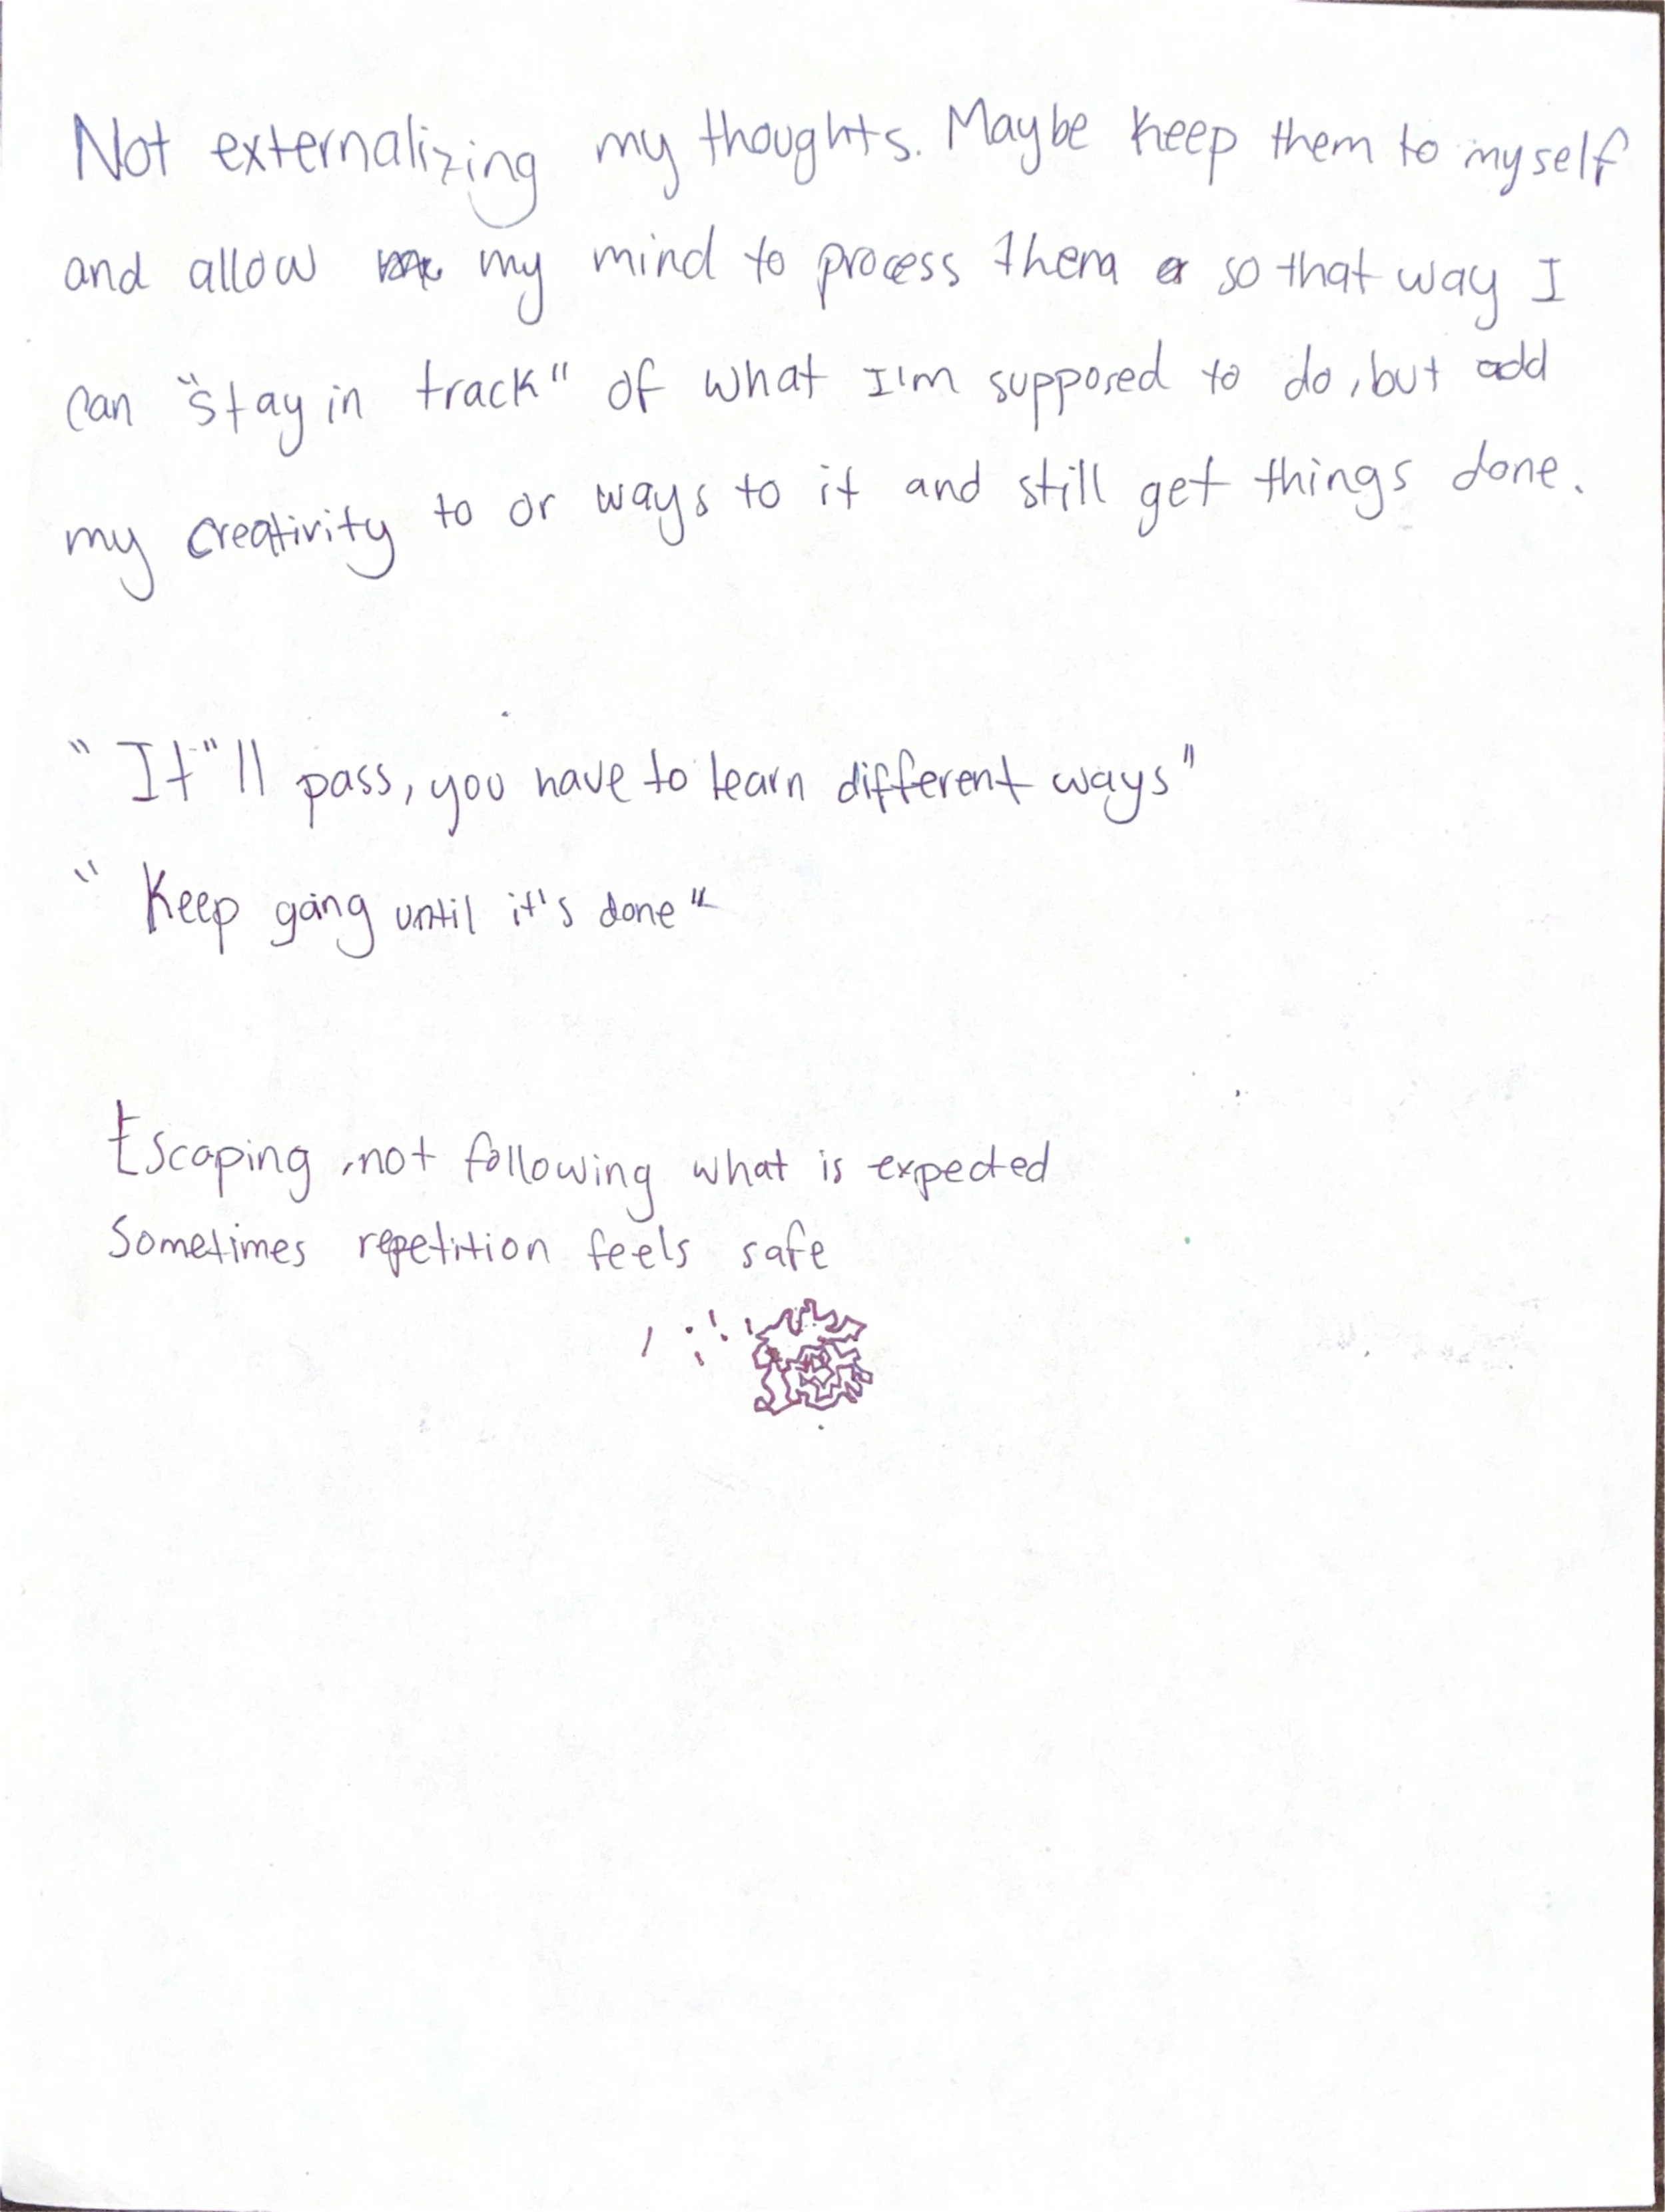 Not externalizing my thoughts. Maybe keep them to myself
and allow my mind to process them so that way I
can "stay in track" of what I'm supposed to do, but add
my creativity to or ways to it and still get things done.
"It"ll pass, you have to learn different ways"
"Keep going until it's done"
Escaping, not following what is expected
Sometimes repetition feels safe